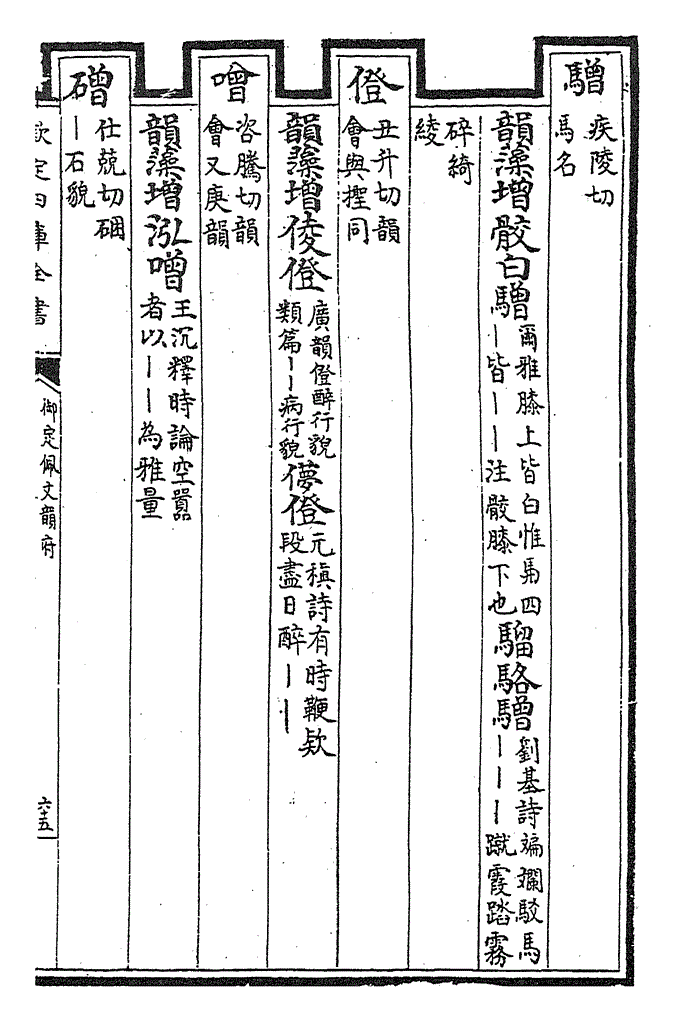 驓
疾陵切
馬名
韻藻增骹白驓
爾雅膝上皆白惟馬四
丨皆丨丨注骹膝下也
騮駱驓
劉基詩斒斕駁馬
丨丨丨蹴霞踏霧
碎綺
綾
僜
丑升切韻
會與同
韻藻增倰僜
廣韻僜醉行貌
類篇丨丨病行貌
儚僜
元稹詩有時鞭欵
段盡日醉丨丨
噌
咨騰切韻
會又庚韻
韻藻增泓噌
王沉釋時論空囂
者以丨丨為雅量
磳
仕兢切硱
丨石貌
欽定四庫全書
御定佩文韻府
六五